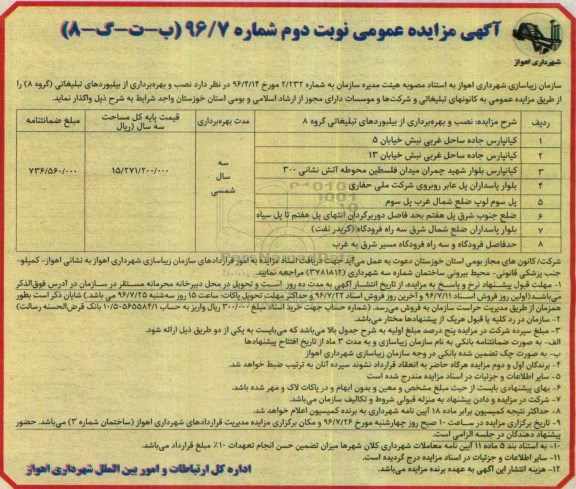 آگهی مزایده عمومی نوبت دوم شماره ۹۶/۷ (ب-ت-گ-۸)
شهرداری اهواز
سازمان زیباسازی شهرداری اهواز به استناد مصوبه هیئت مدیره سازمان به شماره ۲/۲۳۲ مورخ ۹۶/۴/۱۴ در نظر دارد نصب و بهره‌برداری از بیلبوردهای تبلیغاتی (گروه ۸) را
از طریق مزایده عمومی به کانونهای تبلیغاتی و شرکت‌ها و موسسات دارای مجوز از ارشاد اسلامی و بومی استان خوزستان واجد شرایط به شرح ذیل واگذار نماید.
ردیف شرح مزایده: نصب و بهره‌برداری از بیلبوردهای تبلیغاتی گروه ۸ مدت بهره‌برداری قیمت پایه کل مساحت سه سال (ریال) مبلغ ضمانتنامه
۱ کیانپارس جاده ساحل غربی نبش خیابان ۵
۲ کیانپارس جاده ساحل غربی نبش خیابان ۱۳
۳ کیانپارس بلوار شهید چمران میدان فلسطین محوطه آتش نشانی ۳۰۰
۴ بلوار پاسداران پل عابر روبروی شرکت ملی حفاری
۵ پل سوم لوپ ضلع شمال غرب پل سوم
۶ ضلع جنوب شرق پل هفتم بحد فاصل دوربرگردان انتهای پل هفتم تا پل سیاه
۷ بلوار پاسداران ضلع شمال شرق سه راه فرودگاه (کریدر نفت)
۸ حدفاصل فرودگاه و سه راه فرودگاه مسیر شرق به غرب
سه سال شمسی ۱۵/۲۷۱/۲۰۰/۰۰۰ ۷۳۶/۵۶۰/۰۰۰
شرکت/ کانون های مجاز بومی استان خوزستان دعوت به عمل می‌آید جهت دریافت اسناد مزایده به امور قراردادهای سازمان زیباسازی شهرداری اهواز به نشانی اهواز- کمپلو-
جنب پزشکی قانونی- محیط بیرونی ساختمان شماره سه شهرداری (۳۷۸۱۸۱۲) مراجعه نمایید.
۱- مهلت قبول پیشنهاد نرخ و پاسخ به مزایده، از تاریخ انتشار آگهی به مدت ده روز است و تحویل در محل دبیرخانه محرمانه مستقر در سازمان در آدرس فوق‌الذکر
می‌باشد:(اولین روز فروش اسناد ۹۶/۷/۱۱ و آخرین روز فروش اسناد ۹۶/۷/۲۲ و حداکثر مهلت تحویل پاکات: ساعت ۱۵ روز سه‌شنبه ۹۶/۷/۲۵ می باشد.) شایان ذکر است بطور
همزمان از طریق مدیریت حراست سازمان به فروش می‌رسد. (شماره حساب جهت خرید اسناد مبلغ ۳۰۰/۰۰۰ ریال واریز به حساب ۱۰/۵۰۵۶۵۵۸۴/۱ بانک قرض‌الحسنه رسالت)
۲- سازمان در رد کلیه یا قبول هریک از پیشنهادها مختار می‌باشد.
۳- مبلغ سپرده شرکت در مزایده پنج درصد مبلغ اولیه به شرح جدول بالا می‌باشد که می‌بایست به یکی از دو طریق ذیل ارائه شود.
الف- به صورت ضمانتنامه بانکی به نام سازمان زیباسازی و به مدت ۳ ماه از تاریخ افتتاح پیشنهادها
ب- به صورت چک تضمین شده بانکی در وجه سازمان زیباسازی شهرداری اهواز
۴- برندگان اول و دوم مزایده هرگاه حاضر به انعقاد قرارداد نشوند سپرده آنان به ترتیب ضبط خواهد شد.
۵- سایر اطلاعات و جزئیات در اسناد مزایده مندرج شده است
۶- بهای پیشنهادی بایست از حیث مبلغ مشخص و معین و بدون ابهام و در پاکات لاک و مهر شده باشد.
۷- شرکت در مزایده و دادن پیشنهاد به منزله قبولی شروط و تکالیف سازمان می‌باشد.
۸- حداکثر نتیجه کمیسیون برابر ماده ۱۸ آیین نامه شهرداری به برنده کمیسیون اعلام خواهد شد.
۹- تاریخ برگزاری مزایده در ساعت ۱۰ صبح روز چهارشنبه مورخ ۹۶/۷/۲۶ و مکان برگزاری مزایده مدیریت قراردادهای شهرداری اهواز (ساختمان شماره ۳) می‌باشد. حضور
پیشنهاد دهندگان در جلسه الزامی است.
۱۰- به استناد بند ۵ ماده ۱۱ آیین نامه معاملات شهرداری کلان شهرها میزان تضمین حسن انجام تعهدات ۱۰٪ مبلغ قرارداد می‌باشد.
۱۱- سایر اطلاعات و جزئیات در اسناد مزایده درج گردیده است.
۱۲- هزینه انتشار این آگهی به عهده برنده مزایده می‌باشد.
اداره کل ارتباطات و امور بین الملل شهرداری اهواز